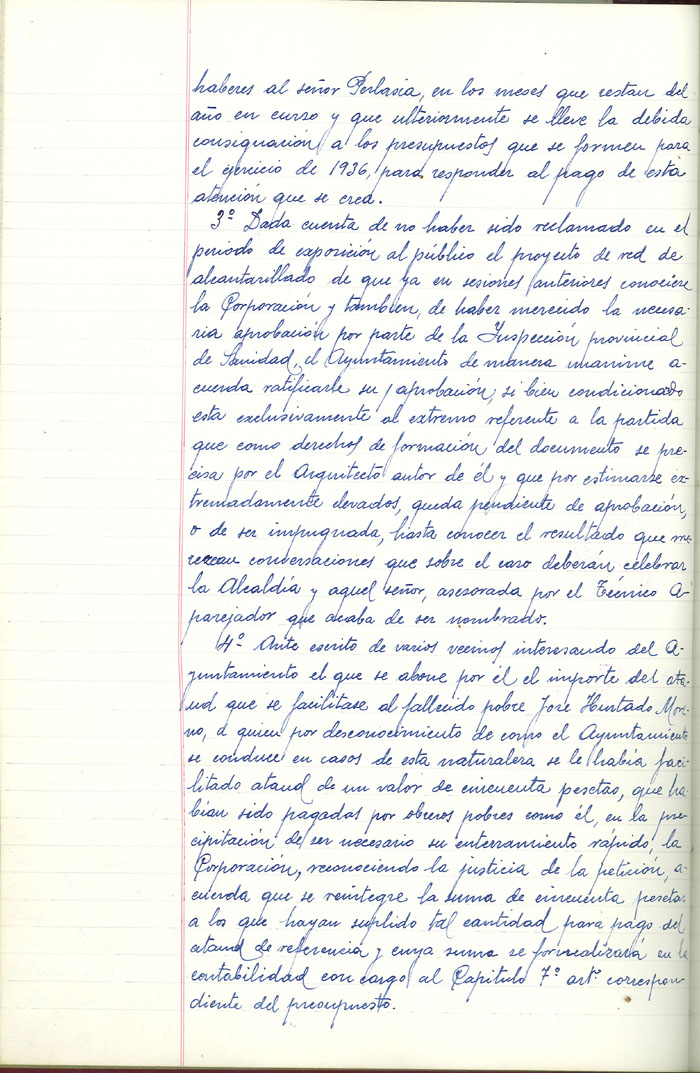 haberes al señor Perlasia, en los meses que restan del
año en curso y que ulteriormente se lleve la debida
consignación a los presupuestos que se formen para
el ejercicio de 1936, para responder al pago de esta
atención que se crea.
3º Dada cuenta de no haber sido reclamado en el
periodo de exposición al público el proyecto de red de
alcantarillado de que ya en sesiones anteriores conociese
la Corporación y tambien, de haber merecido la necesa-
ria aprobación por parte de la Inspección provincial
de Sanidad, el Ayuntamiento de manera unanime a-
cuerda ratificarle su aprobación, si bien condicionado
esta exclusivamente al extremo referente a la partida
que como derechos de formación del documento se pre-
cisa por el Arquitecto autor de él y que por estimarse ex-
tremadamente elevados, queda pendiente de aprobación,
o de ser impugnada, hasta conocer el resultado que me-
rezcan conversaciones que sobre el caso deberán celebrar
la Alcaldía y aquel señor, asesorada por el Técnico A-
parejador que acaba de ser nombrado.
4º Ante escrito de varios vecinos interesando del A-
yuntamiento el que se abone por él el importe del ata-
ud que se facilitase al fallecido pobre José Hurtado More-
no, a quien por desconocimiento de como el Ayuntamiento
se conduce en casos de esta naturaleza se le había faci-
litado ataud de un valor de cincuenta pesetas, que ha-
bían sido pagadas por obreros pobres como él, en la pre-
cipitación de ser necesario su enterramiento rápido, la
Corporación, reconociendo la justicia de la petición, a-
cuerda que se reintegre la suma de cincuenta pesetas
a los que hayan suplido tal cantidad para pago del
ataud de referencia y cuya suma se formalizará en la
contabilidad con cargo al Capitulo 7º artº correspon-
diente del presupuesto.